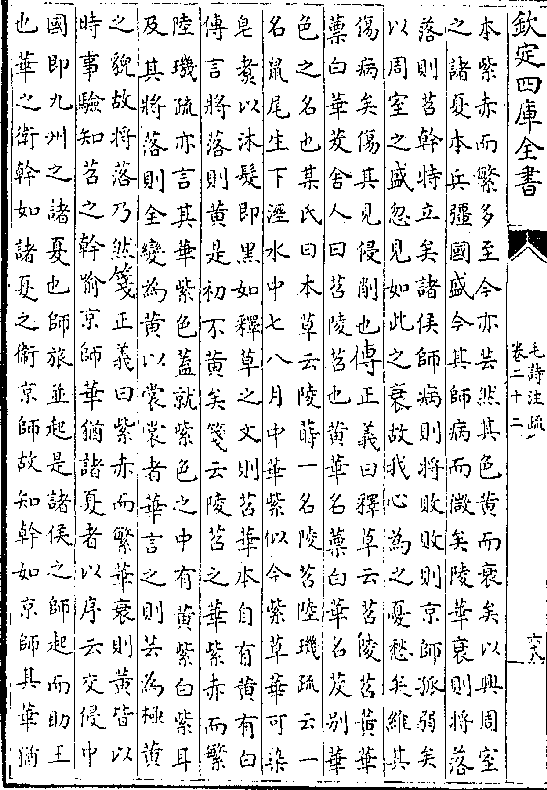 欽定四庫全書
毛詩注疏
卷二十二
六八
本紫赤而繁多至今亦芸然其色黄而衰矣以興周室
之諸夏本兵彊國盛今其師病而微矣陵華衰則將落
落則苕幹特立矣諸侯師病則將敗敗則京師孤弱矣
以周室之盛忽見如此之衰故我心為之憂愁矣維其
傷病矣傷其見侵削也傳正義曰釋草云苕陵苕黄華
蔈白華茇舍人曰苕陵苕也黄華名蔈白華名茇别華
色之名也某氏曰本草云陵蒔一名陵苕陸璣疏云一
名鼠尾生下溼水中七八月中華紫似今紫草華可染
皂煑以沐髮即黒如釋草之文則苕華本自有黄有白
傳言將落則黄是初不黄矣箋云陵苕之華紫赤而繁
陸璣疏亦言其華紫色蓋就紫色之中有黄紫白紫耳
及其將落則全變為黄以裳裳者華言之則芸為極黄
之貌故將落乃然箋正義曰紫赤而繁華衰則黄皆以
時事驗知苕之幹喻京師華猶諸夏者以序云交侵中
國即九州之諸夏也師旅並起是諸侯之師起而助王
也華之衛幹如諸夏之衛京師故知幹如京師其華猶